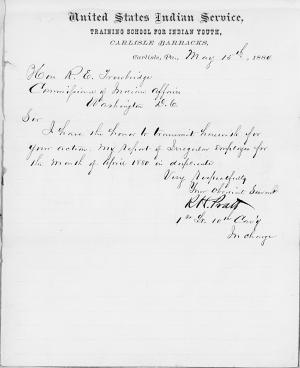 United States Indian Service,
TRAINING SCHOOL FOR INDIAN YOUTH,
CARLISLE BARRACKS,
Carlisle, Pa., May 15th, 1880
Hon R. E. Trowbridge
Commissioner of Indian Affairs
Washington D.C.
Sir
I have the honor to transmit herewith for
your action, my Report of Irregular Employes for
the Month of April 1880 in duplicate
Very Respectfully
Your Obedient Servant
R H Pratt
1st Lt 10th Cav'y
In charge